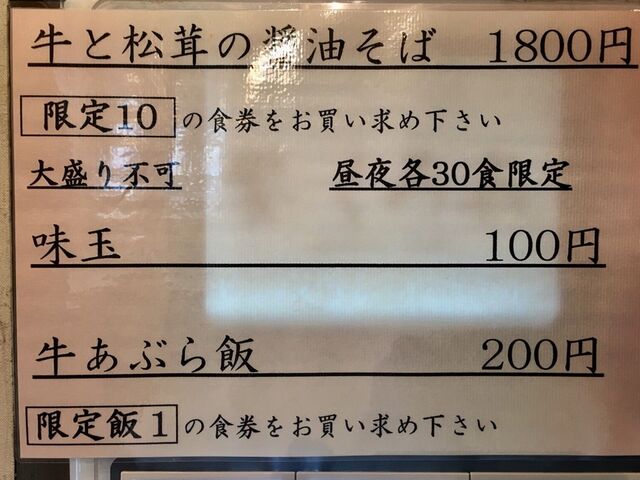 牛と松茸の醤油そば 1800円
限定10 の食券をお買い求め下さい
大盛り不可 昼夜各30食限定
味玉 100円
牛あぶら飯 200円
限定飯1 の食券をお買い求め下さい